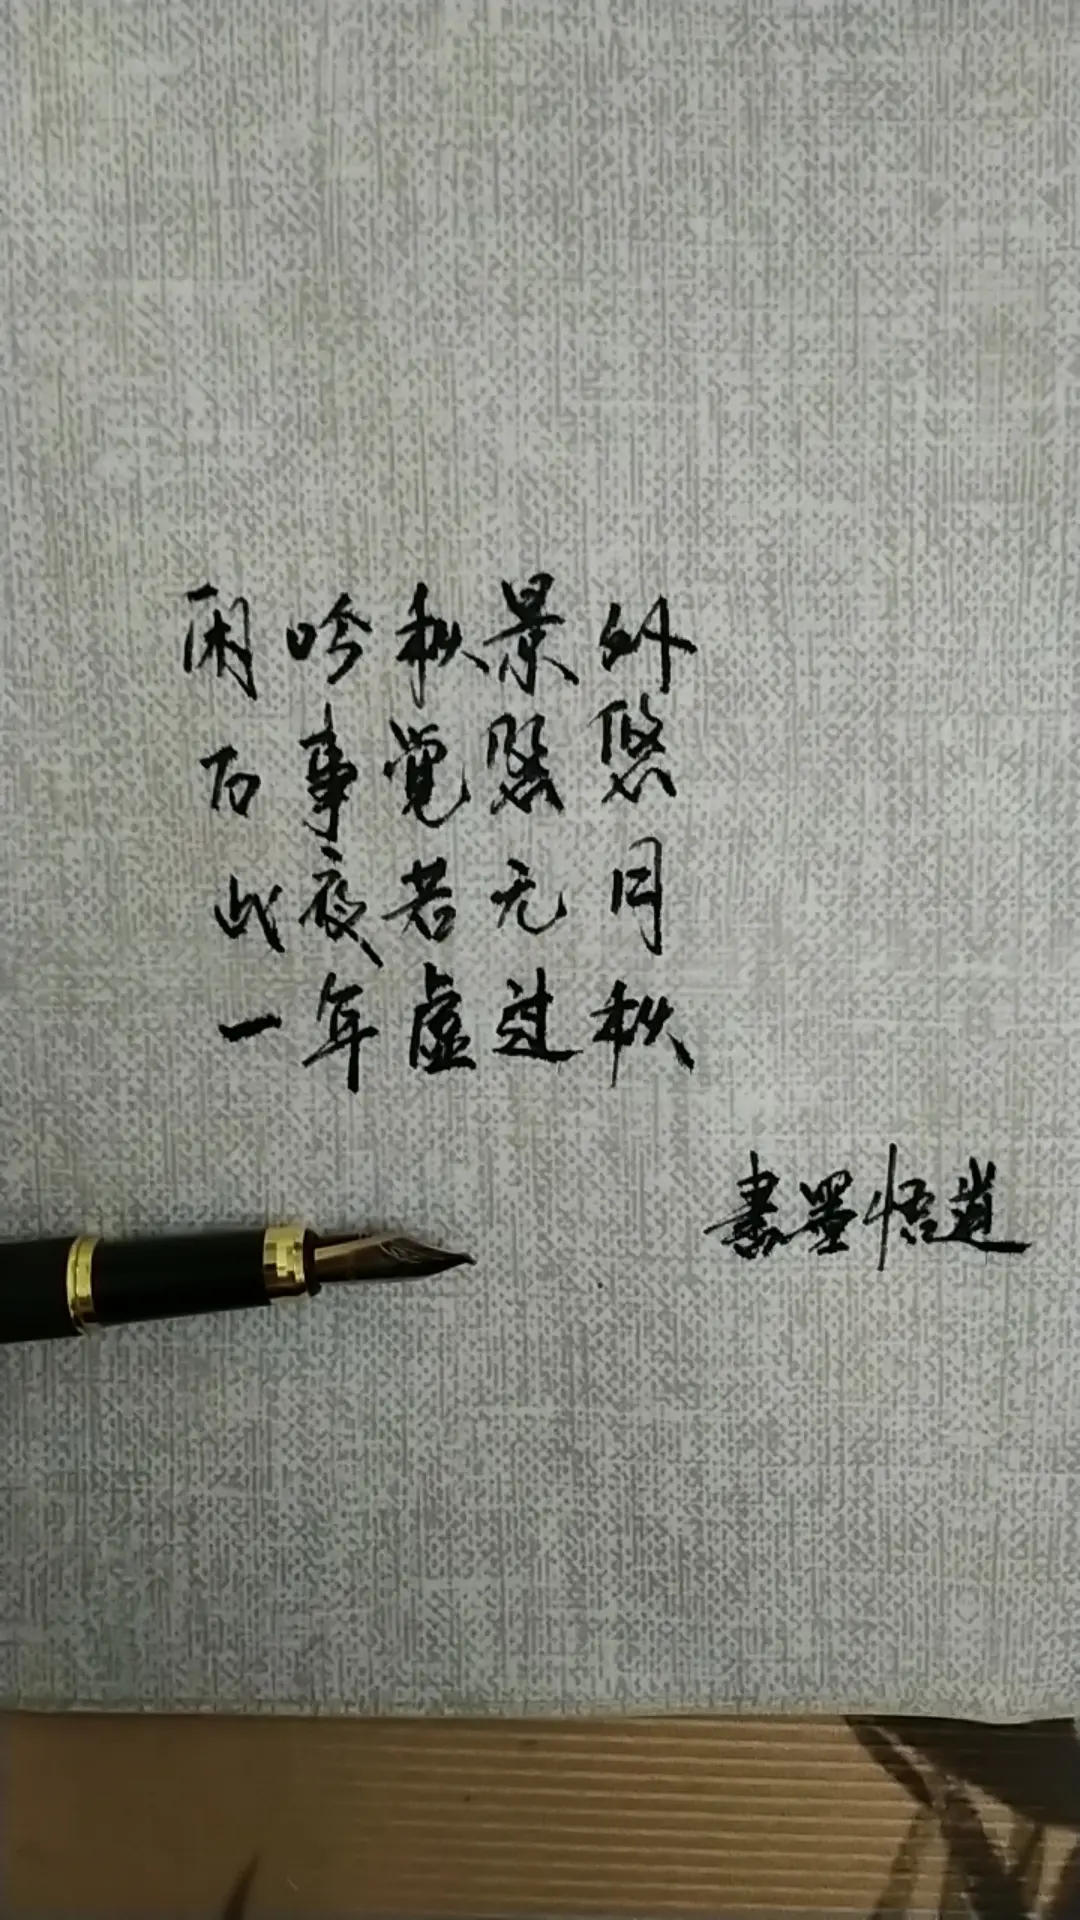 闲吟秋景外
万事觉悠悠
此夜若无月
一年虚过秋
書墨悟道